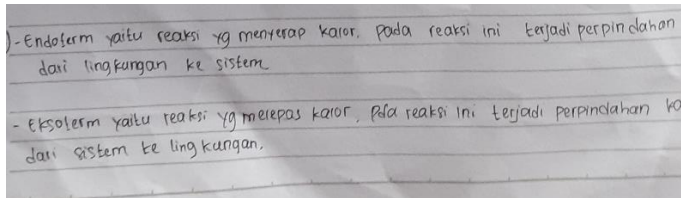 )- Endoterm yaitu reaksi yg menyerap kalor, pada reaksi ini terjadi perpindahan
dari lingkungan ke sistem
- Eksoterm yaitu reaksi yg melepas kalor, pda reaksi ini terjadi perpindahan
dari sistem ke lingkungan.